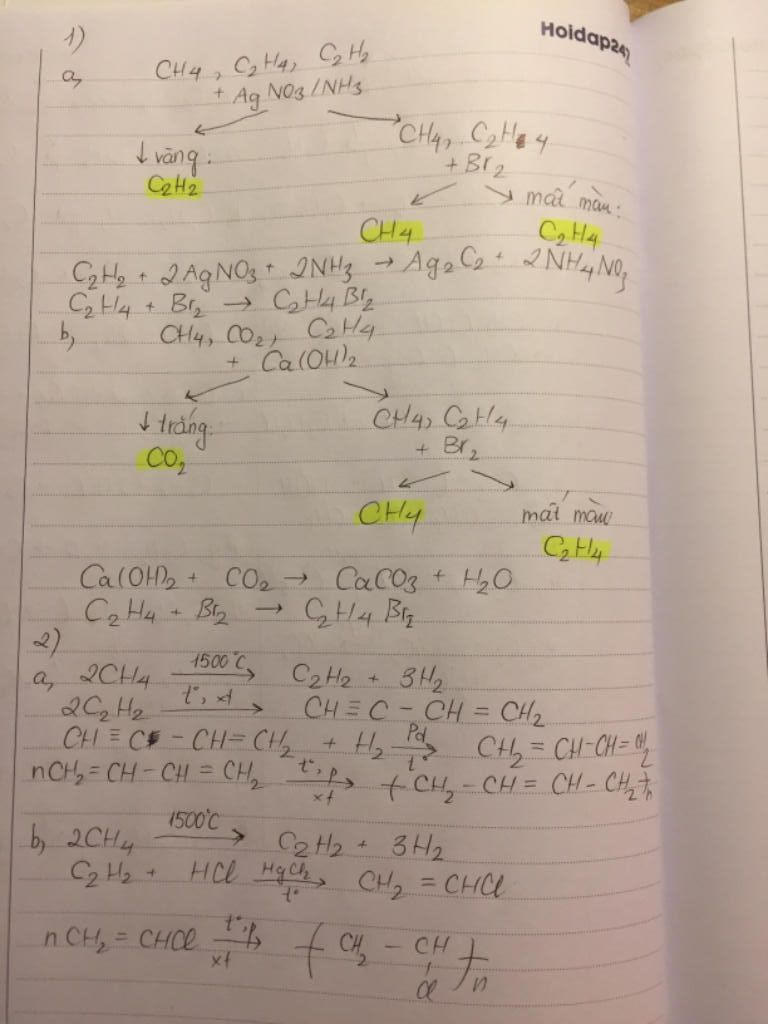 Hoidap247
1)
a, CH4, C2H4, C2H2
+ AgNO3/NH3
↓ vàng: CH4, C2H4
C2H2 + Br2
mất màu:
CH4 C2H4
C2H2 + 2AgNO3 + 2NH3 → Ag2C2 + 2NH4NO3
C2H4 + Br2 → C2H4Br2
b, CH4, CO2, C2H4
+ Ca(OH)2
↓ trắng: CH4, C2H4
CO2 + Br2
CH4 mất màu
C2H4
Ca(OH)2 + CO2 → CaCO3 + H2O
C2H4 + Br2 → C2H4Br2
2)
a, 2CH4 1500°C → C2H2 + 3H2
2C2H2 t°, xt → CH≡C-CH=CH2
CH≡C-CH=CH2 + H2 Pd t° → CH2=CH-CH=CH2
nCH2=CH-CH=CH2 t°, p xt → (CH2-CH=CH-CH2)n
b, 2CH4 1500°C → C2H2 + 3H2
C2H2 + HCl HgCl2 t° → CH2=CHCl
nCH2=CHCl t°, p xt → (CH2-CH)n
Cl